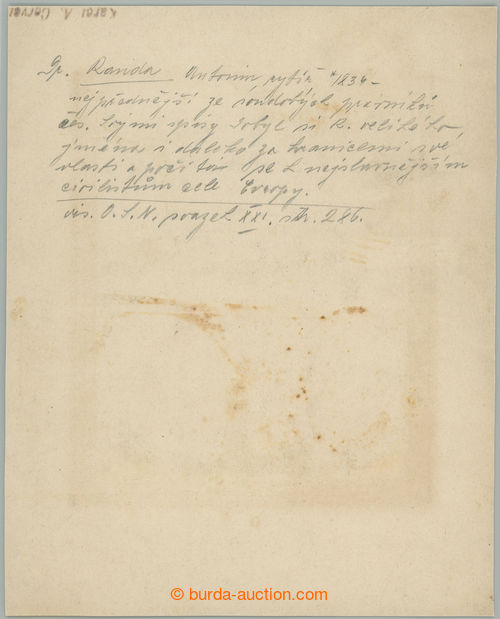 Karel A. Červený
Dr. Randa Antonín, rytíř */1834 -
nejpřednější ze soudobých právníků
čes. Svými spisy dobyl si R. velikého
jména i daleko za hranicemi své
vlasti a počítán se k nejslavnějším
civilistům celé Evropy.
viz. O.S.N. svazek XXI. str. 286.
burda-auction.com